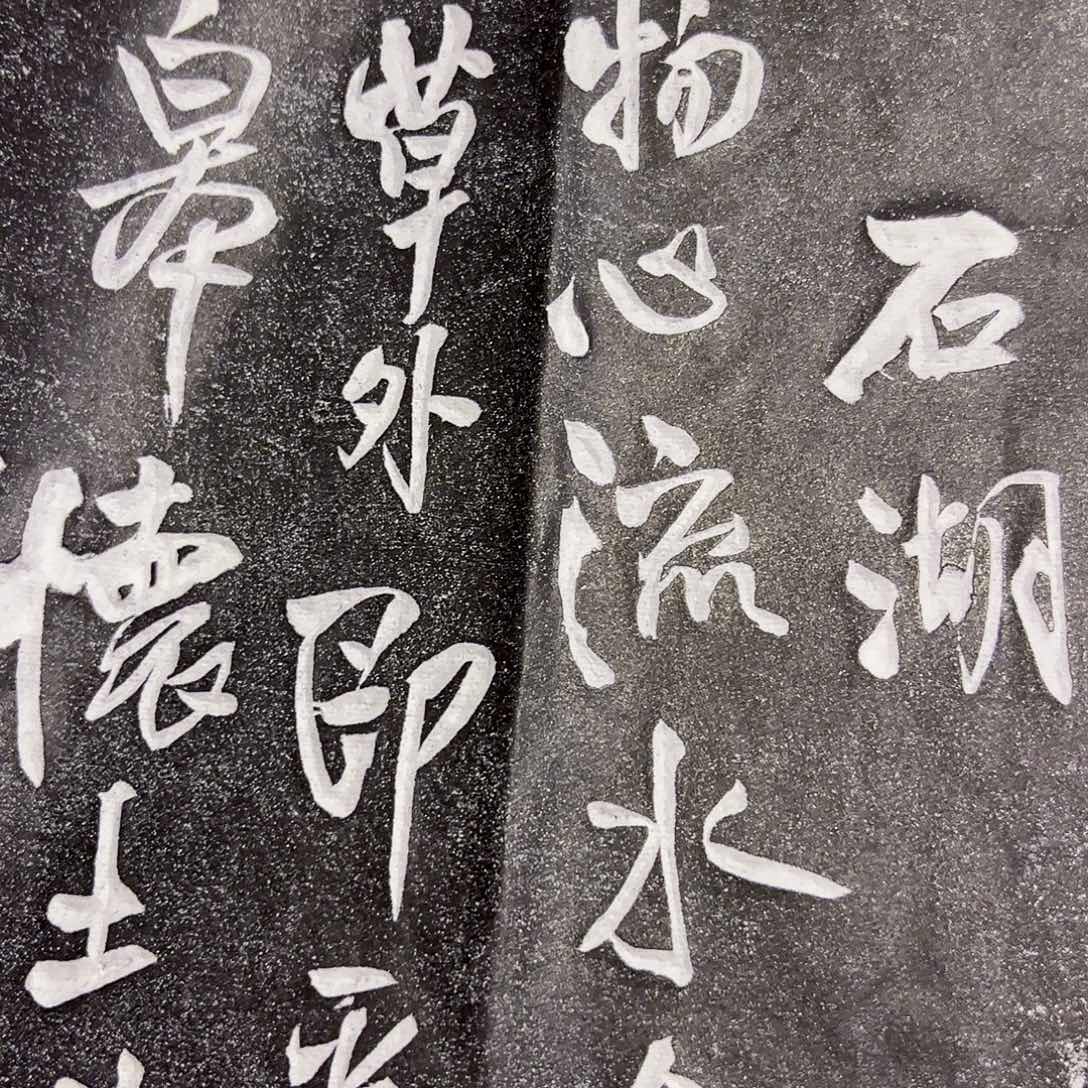 石湖
物心流水
草外即
皋懷土